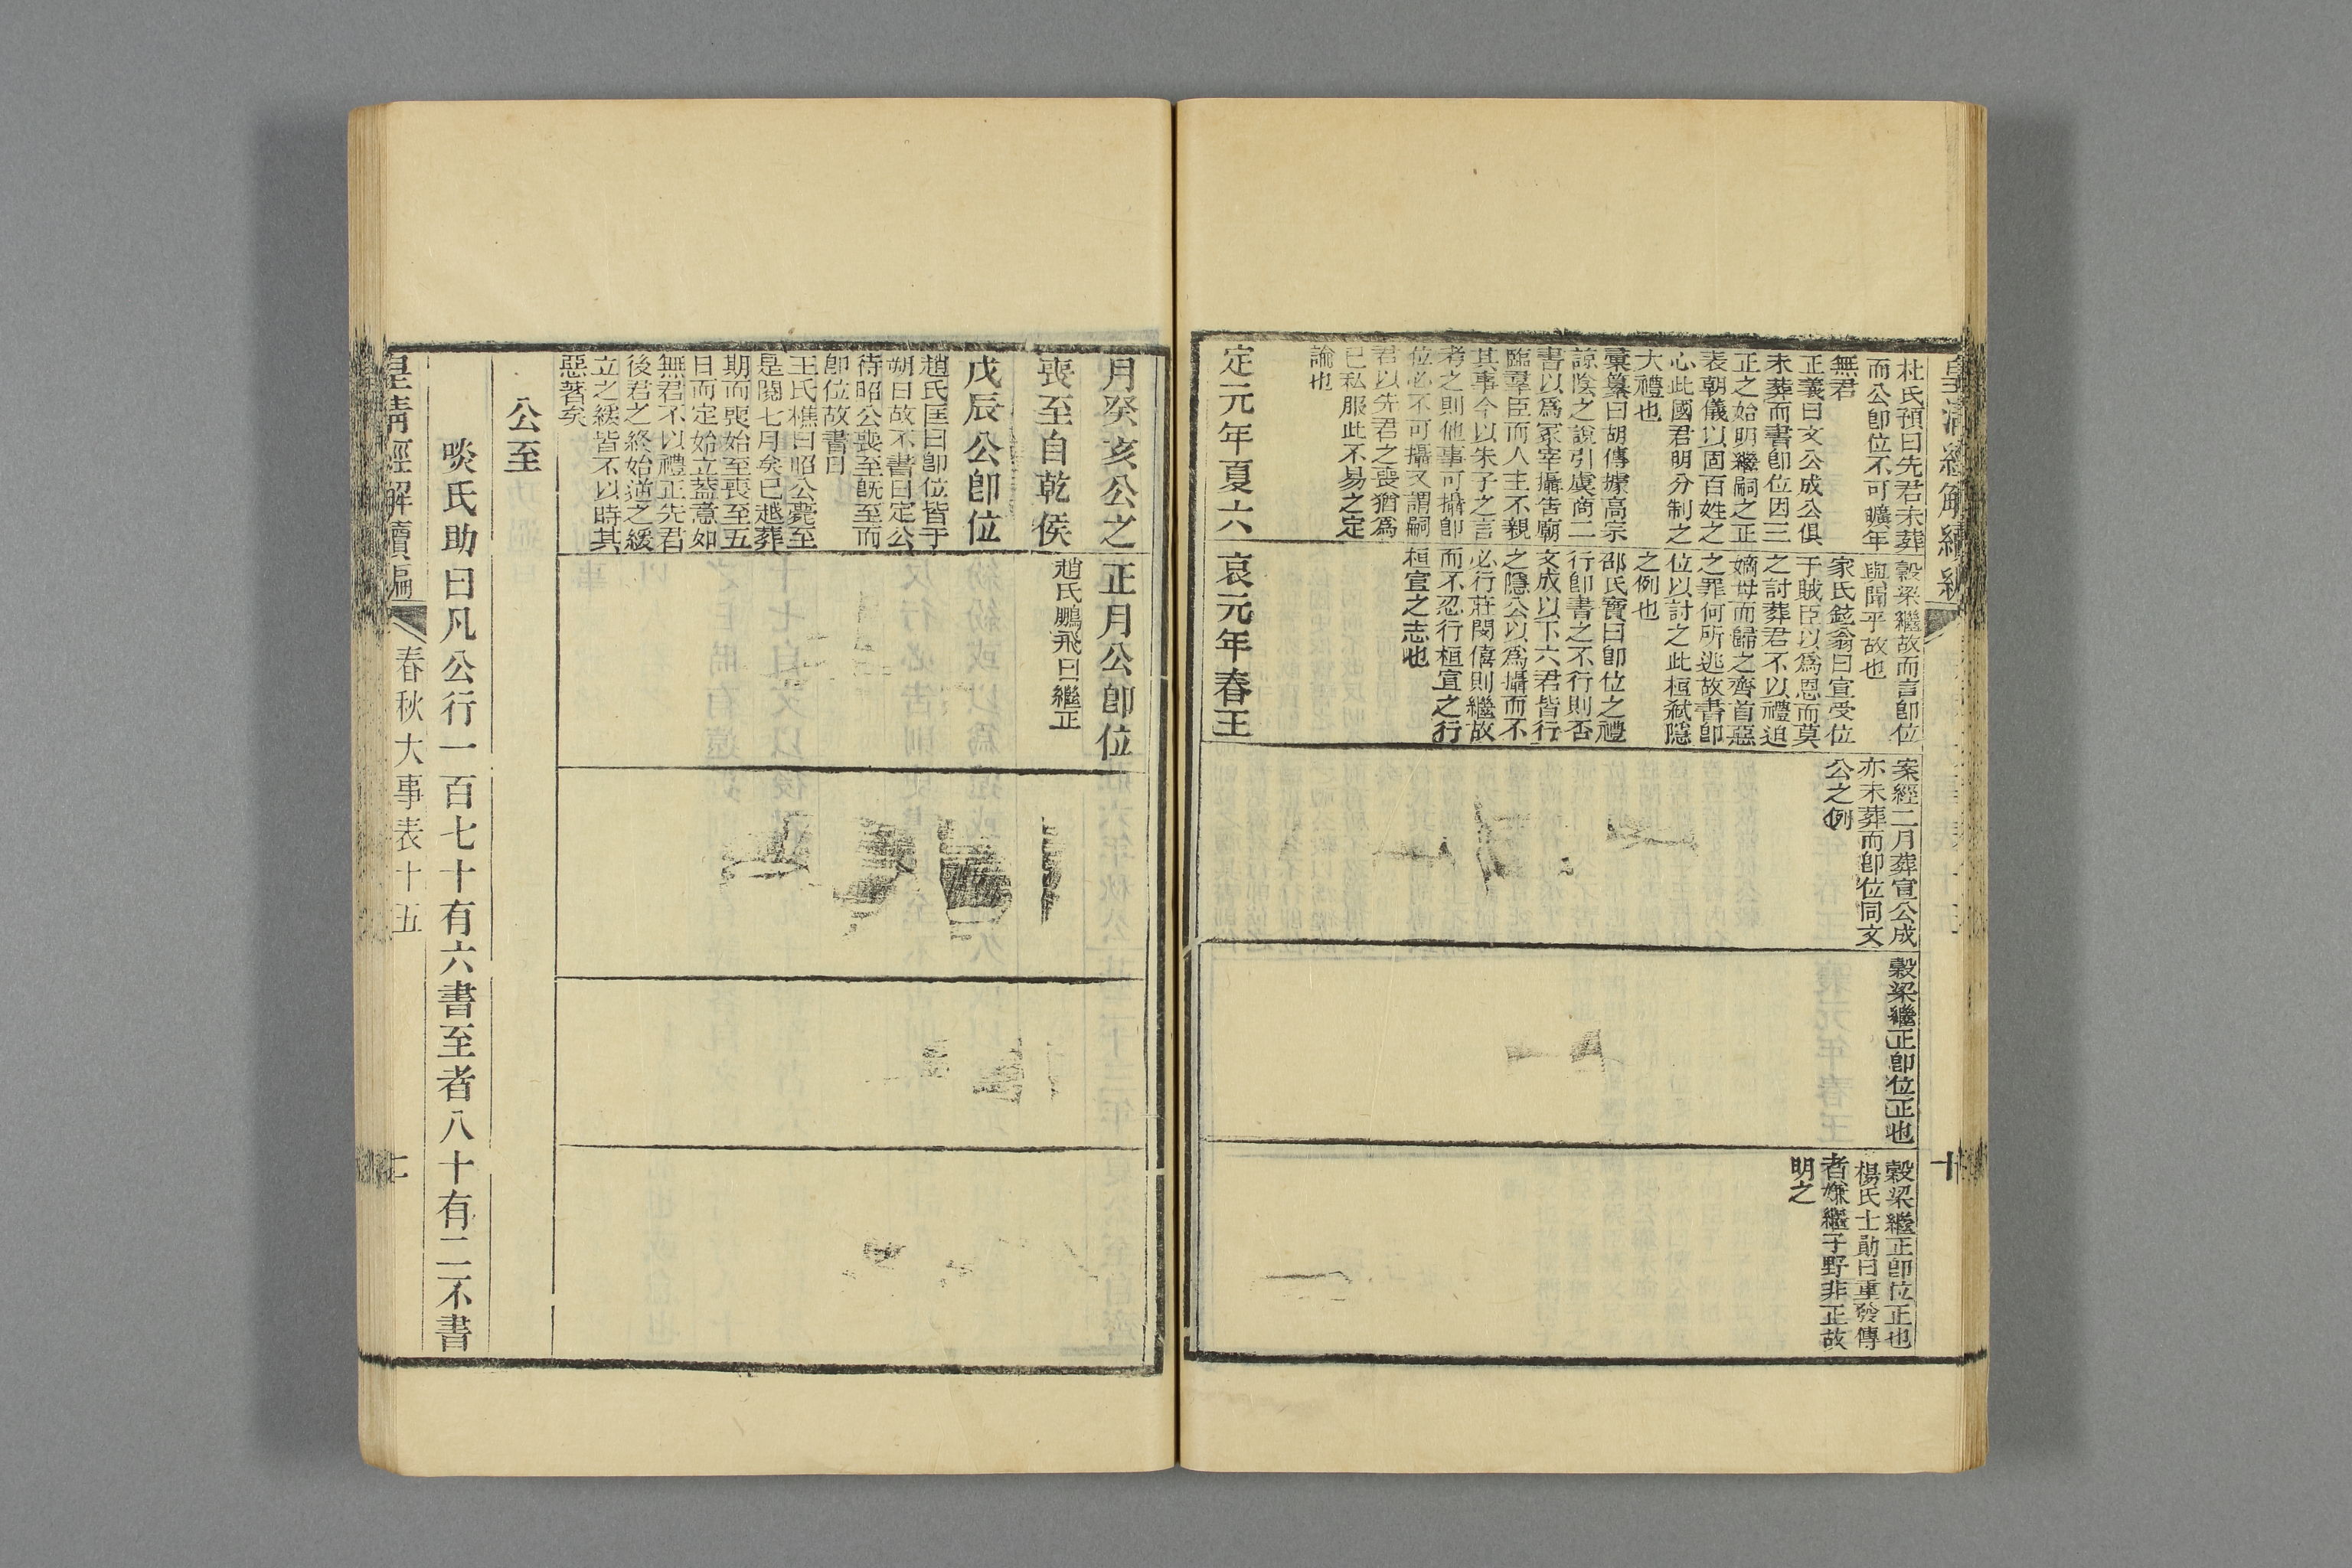 皇清經解續編
十
杜氏預曰先君未葬
而公卽位不可曠年
無君
正義曰文公成公俱
未葬而書卽位因三
正之始明繼嗣之正
表朝儀以固百姓之
心此國君明分制之
大禮也
彙纂曰胡傳據高宗
諒陰之說引虞商二
書以爲冢宰攝告廟
臨羣臣而人主不親
其事今以朱子之言
考之則他事可攝卽
位必不可攝又謂嗣
君以先君之喪猶爲
已私服此不易之定
論也
定元年夏六
穀梁繼故而言卽位
與聞乎故也
家氏鉉翁曰宣受位
于賊臣以爲恩而莫
之討葬君不以禮迫
嫡母而歸之齊首惡
之罪何所逃故書卽
位以討之此桓弒隱
之例也
邵氏寶曰卽位之禮
行卽書之不行則否
文成以下六君皆行
之隱公以爲攝而不
必行莊閔僖則繼故
而不忍行桓宣之行
桓宣之志也
哀元年春王
案經二月葬宣公成
亦未葬而卽位同文
公之例
穀梁繼正卽位正也
穀梁繼正卽位正也
楊氏士勛曰重發傳
者嫌繼子野非正故
明之
月癸亥公之
喪至自乾侯
戊辰公卽位
趙氏匡曰卽位皆于
朔日故不書日定公
待昭公喪至旣至而
卽位故書日
王氏樵曰昭公薨至
是閱七月矣已越葬
期而喪始至喪至五
日而定始立蓋意如
無君不以禮正先君
後君之終始遒之緩
立之緩皆不以時其
惡著矣
正月公卽位
趙氏鵬飛曰繼正
公至
啖氏助曰凡公行一百七十有六書至者八十有二不書
皇淸經解續編
春秋大事表十五